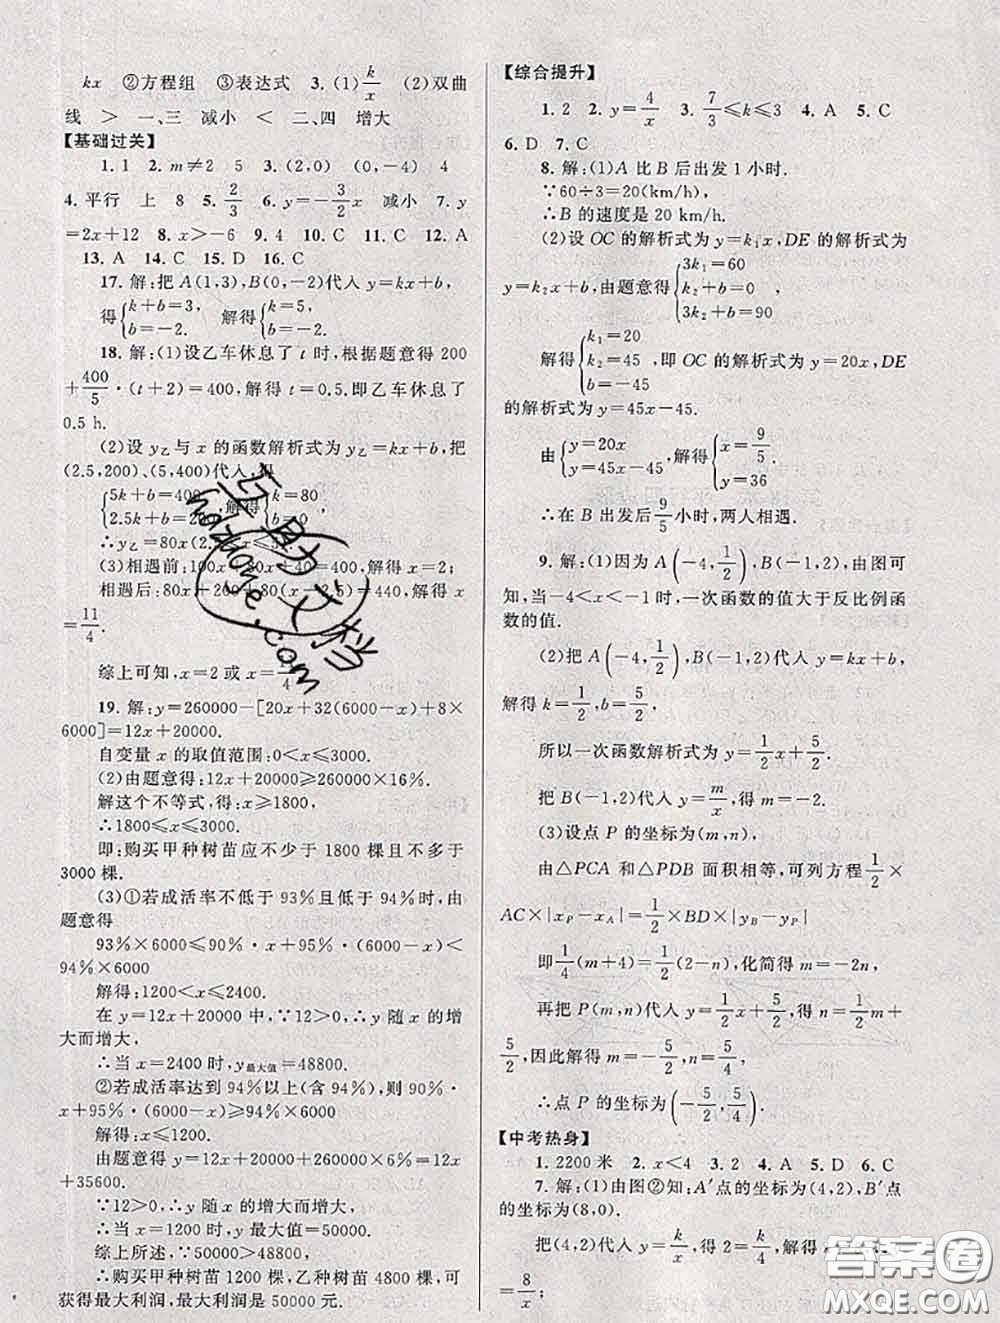 kx ②方程组 ③表达式 3. (1) k/x (2)双曲
线 > 一、三 减小 < 二、四 增大
【基础过关】
1. 1 2. m≠2 5 3. (2,0) (0,-4) 4
4. 平行 上 8 5. 2/3 6. y=-3/2x 减小 7. y
=2x+12 8. x>-6 9. 4 10. C 11. C 12. A
13. A 14. C 15. D 16. C
17. 解:把 A(1,3),B(0,-2)代入 y=kx+b,
得{k+b=3, b=-2. 解得{k=5, b=-2.
18. 解:(1)设乙车休息了 t 时,根据题意得 200
+400/5·(t+2)=400,解得 t=0.5.即乙车休息了
0.5 h.
(2)设 y乙与 x 的函数解析式为 y乙=kx+b,把
(2.5,200)、(5,400)代入,得
{5k+b=400 2.5k+b=200,解得{k=80 b=0,
∴y乙=80x(2.5≤x≤5).
(3)相遇前:100x+80x+40=400,解得 x=2;
相遇后:80x+200+80(x-2.5)=440,解得 x
=11/4.
综上可知,x=2 或 x=11/4
19. 解:y=260000-[20x+32(6000-x)+8×
6000]=12x+20000.
自变量 x 的取值范围:0<x≤3000.
(2)由题意得:12x+20000≥260000×16%.
解这个不等式,得:x≥1800,
∴1800≤x≤3000.
即:购买甲种树苗应不少于 1800 棵且不多于 3000
棵.
(3)①若成活率不低于 93%且低于 94%时,由
题意得
93%×6000≤90%·x+95%·(6000-x)<
94%×6000
解得:1200<x≤2400.
在 y=12x+20000 中,∵12>0,∴y 随 x 的增
大而增大,
∴当 x=2400 时,y最大值=48800.
②若成活率达到 94%以上(含 94%),则 90%
·x+95%·(6000-x)≥94%×6000
解得:x≤1200.
由题意得 y=12x+20000+260000×6%=12x+
35600.
∵12>0,∴y 随 x 的增大而增大,
∴当 x=1200 时,y 最大值=50000.
综上所述,∵50000>48800
∴购买甲种树苗 1200 棵,乙种树苗 4800 棵,可
获得最大利润,最大利润是 50000 元.
【综合提升】
1. 2 2. y=4/x 3. 7/3≤k≤3 4. A 5. C
6. D 7. C
8. 解:(1)A 比 B 后出发 1 小时.
∵60÷3=20(km/h),
∴B 的速度是 20 km/h.
(2)设 OC 的解析式为 y=k₁x,DE 的解析式为
y=k₂x+b,由题意得{3k₁=60 k₂+b=0 3k₂+b=90,
解得{k₁=20 k₂=45 b=-45,即 OC 的解析式为 y=20x,DE
的解析式为 y=45x-45.
由{y=20x y=45x-45,解得{x=9/5. y=36
∴在 B 出发后9/5小时,两人相遇.
9. 解:(1)因为 A(-4,1/2),B(-1,2),由图可
知,当-4<x<-1时,一次函数的值大于反比例函
数的值.
(2)把 A(-4,1/2),B(-1,2)代入 y=kx+b,
解得 k=1/2,b=5/2,
所以一次函数解析式为 y=1/2x+5/2.
把 B(-1,2)代入 y=m/x,得 m=-2.
(3)设点 P 的坐标为(m,n),
由△PCA 和△PDB 面积相等,可列方程1/2×
AC×|xP-xA|=1/2×BD×|yB-yP|
即1/4(m+4)=1/2(2-n),化简得 m=-2n,
再把 P(m,n)代入 y=1/2x+5/2,得 n=1/2m+
5/2,因此解得 m=-5/2,n=5/4,
∴点 P 的坐标为(-5/2,5/4).
【中考热身】
1. 2200 米 2. x<4 3. 2 4. A 5. D 6. C
7. 解:(1)由图②知:A′点的坐标为(4,2),B′点
的坐标为(8,0).
把(4,2)代入 y=k/x,得 2=k/4,解得
=8/x;
hdzuoye.com
答案圈
MXQE.COM